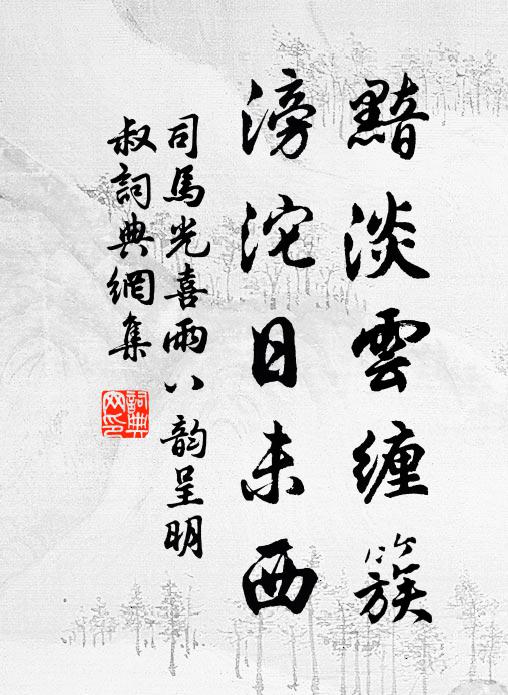 黯淡雲纏簇
滂沱日未西
司馬光喜雨八韵呈明
叔詞典網集
詞典
网印